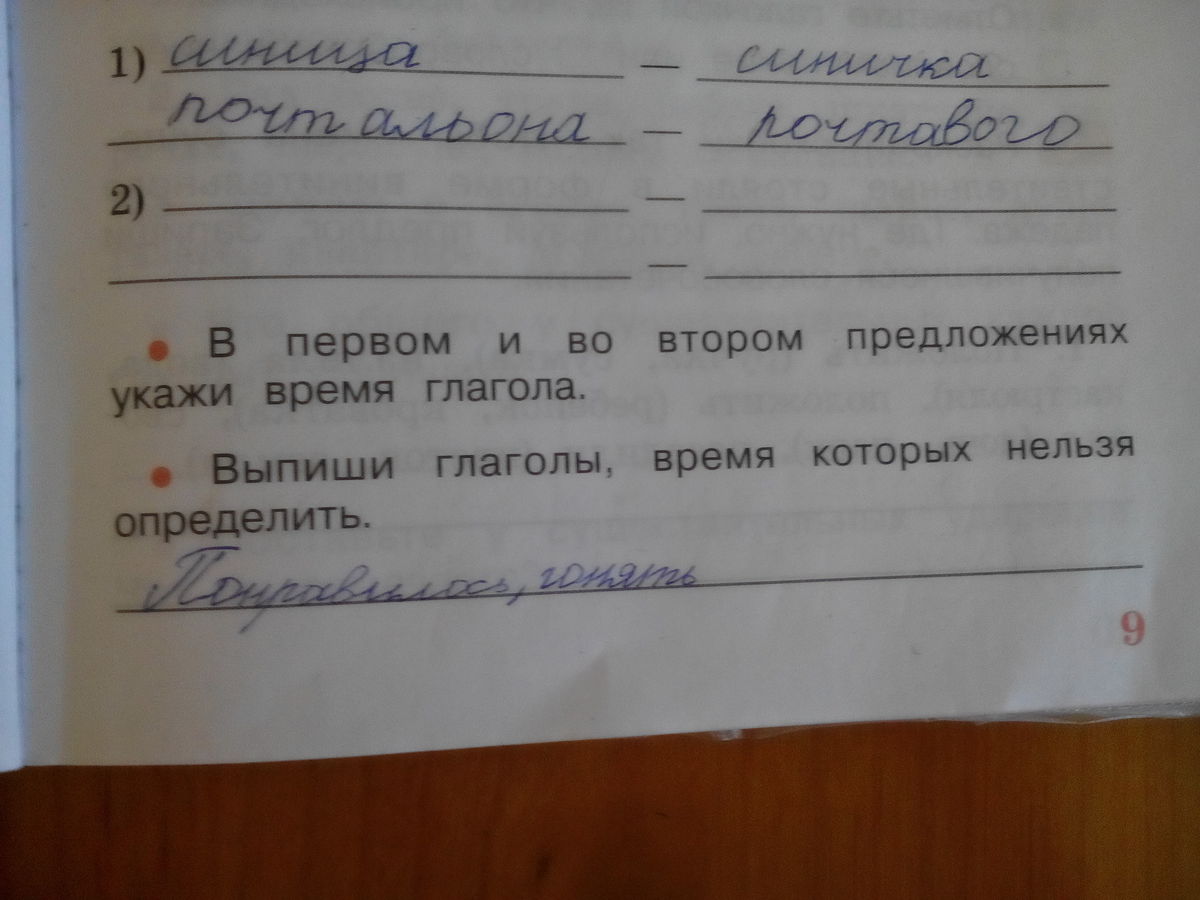 1) синица — синичка
почтальона — почтавого
2) —
—
• В первом и во втором предложениях
укажи время глагола.
• Выпиши глаголы, время которых нельзя
определить.
Понравилось, гонять
9